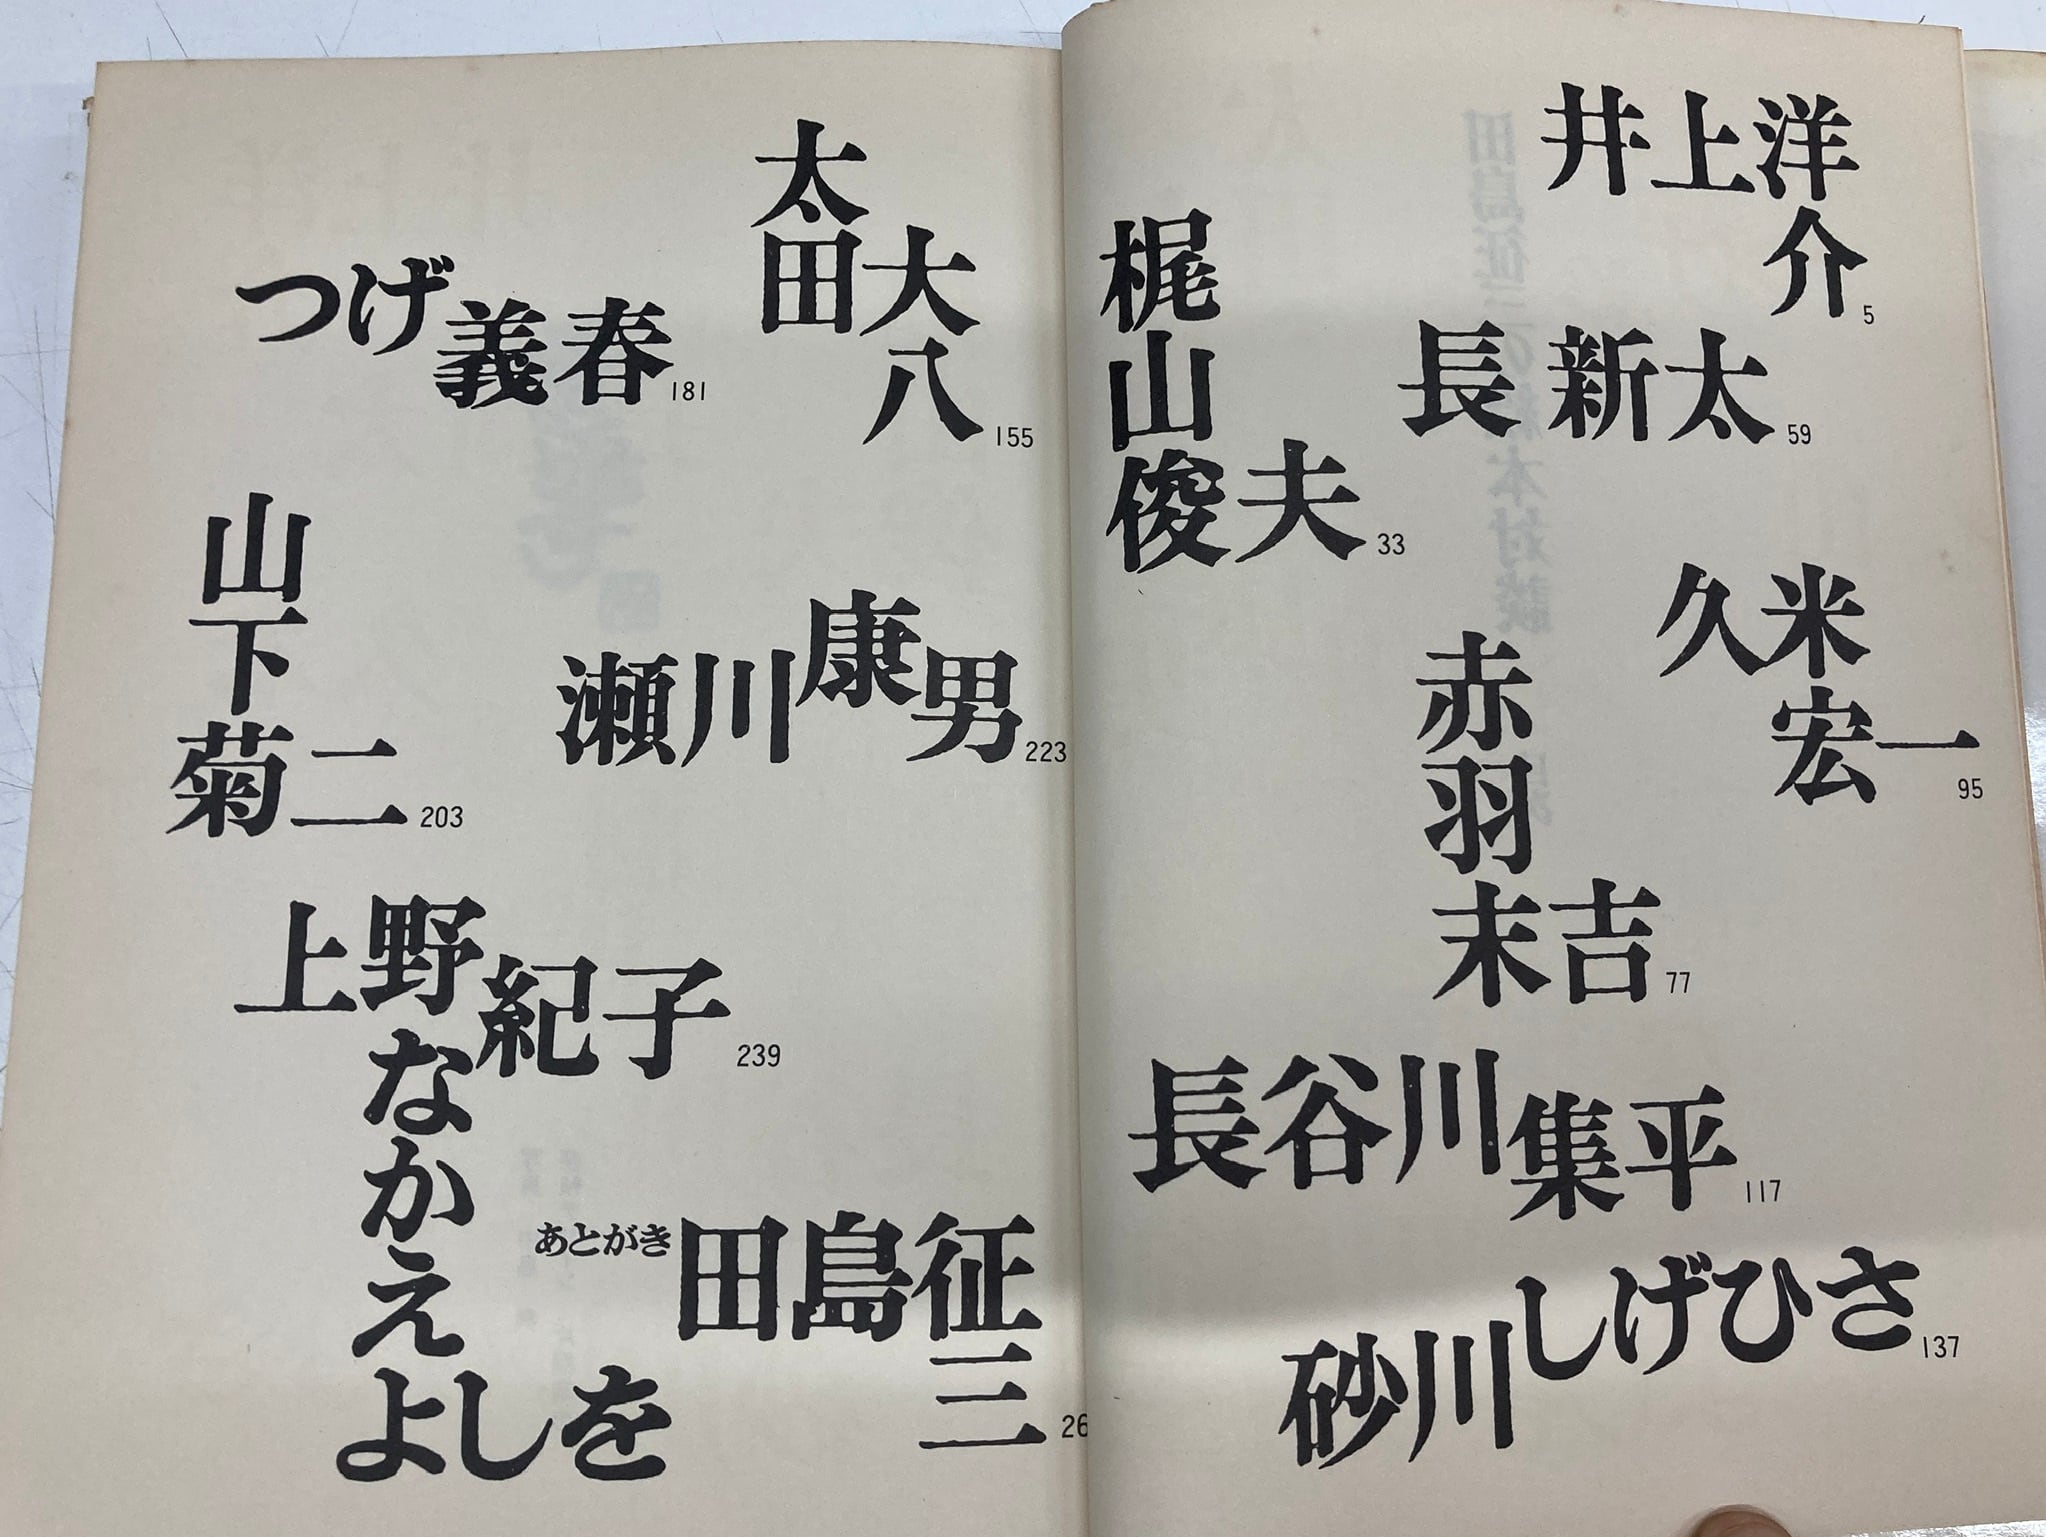 井上洋介 5
梶山俊夫 33
長新太 59
赤羽末吉 77
久米宏一 95
長谷川集平 117
砂川しげひさ 137
太田大八 155
つげ義春 181
山下菊二 203
瀬川康男 223
上野紀子 239
なかえよしを
あとがき 田島征三